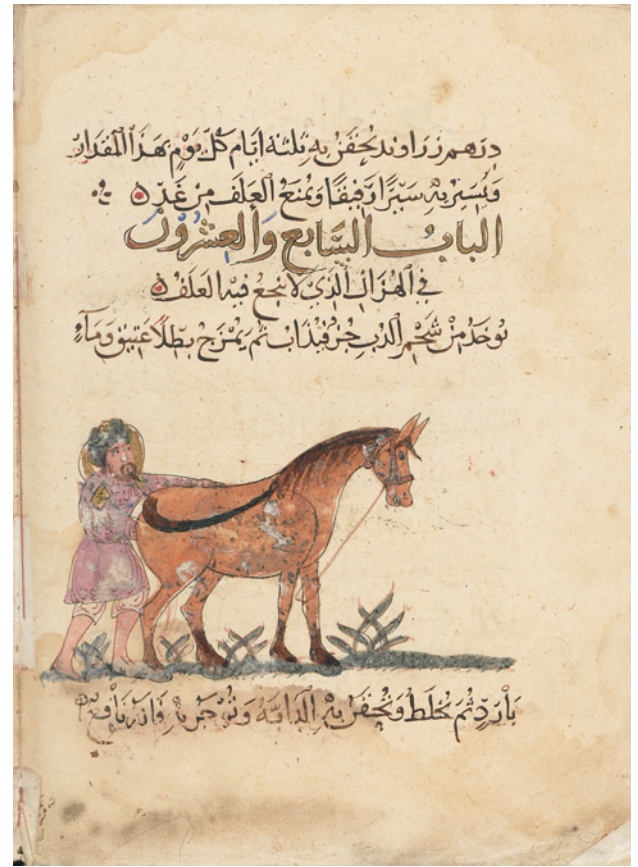 درهم زراوند يحقن به ثلثة ايام كل يوم بهذا المقدار
ويسير به سيرًا رفيقًا ويمنع العلف من غدٍ
الباب السابع والعشرون
في الهزال الذي لا ينجع فيه العلف
يوخذ من شحم الدب جز فيذاب ثم يمزج بطلًا عتيق ومآء
بارد ثم يخلط وتحقن به الدابه ويوجر به فانه نافع